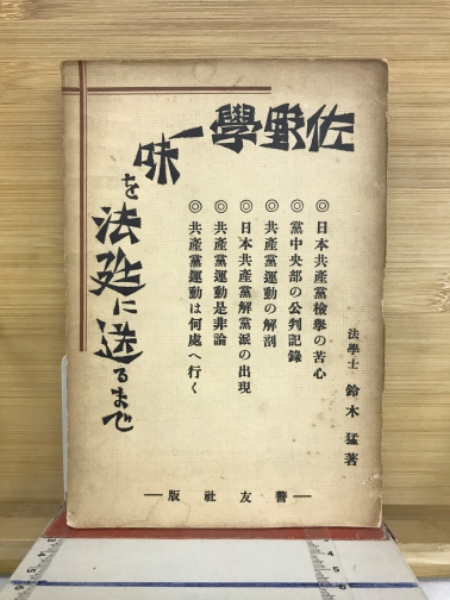 佐野學一味を法廷に送るまで
◎日本共產黨檢擧の苦心
◎黨中央部の公判記錄
◎共產黨運動の解剖
◎日本共產黨解黨派の出現
◎共產黨運動是非論
◎共產黨運動は何處へ行く
法學士 鈴木猛著
―版社友警―